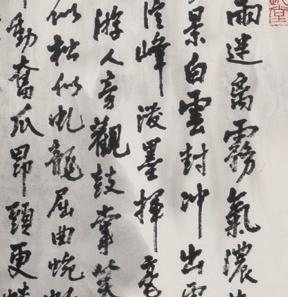 雨迷离雾氣濃
景白雲封冲出雲
峰潑墨揮毫
游人旁觀鼓掌笑
似松似虬龍屈曲蜿
動奮爪昂頭更